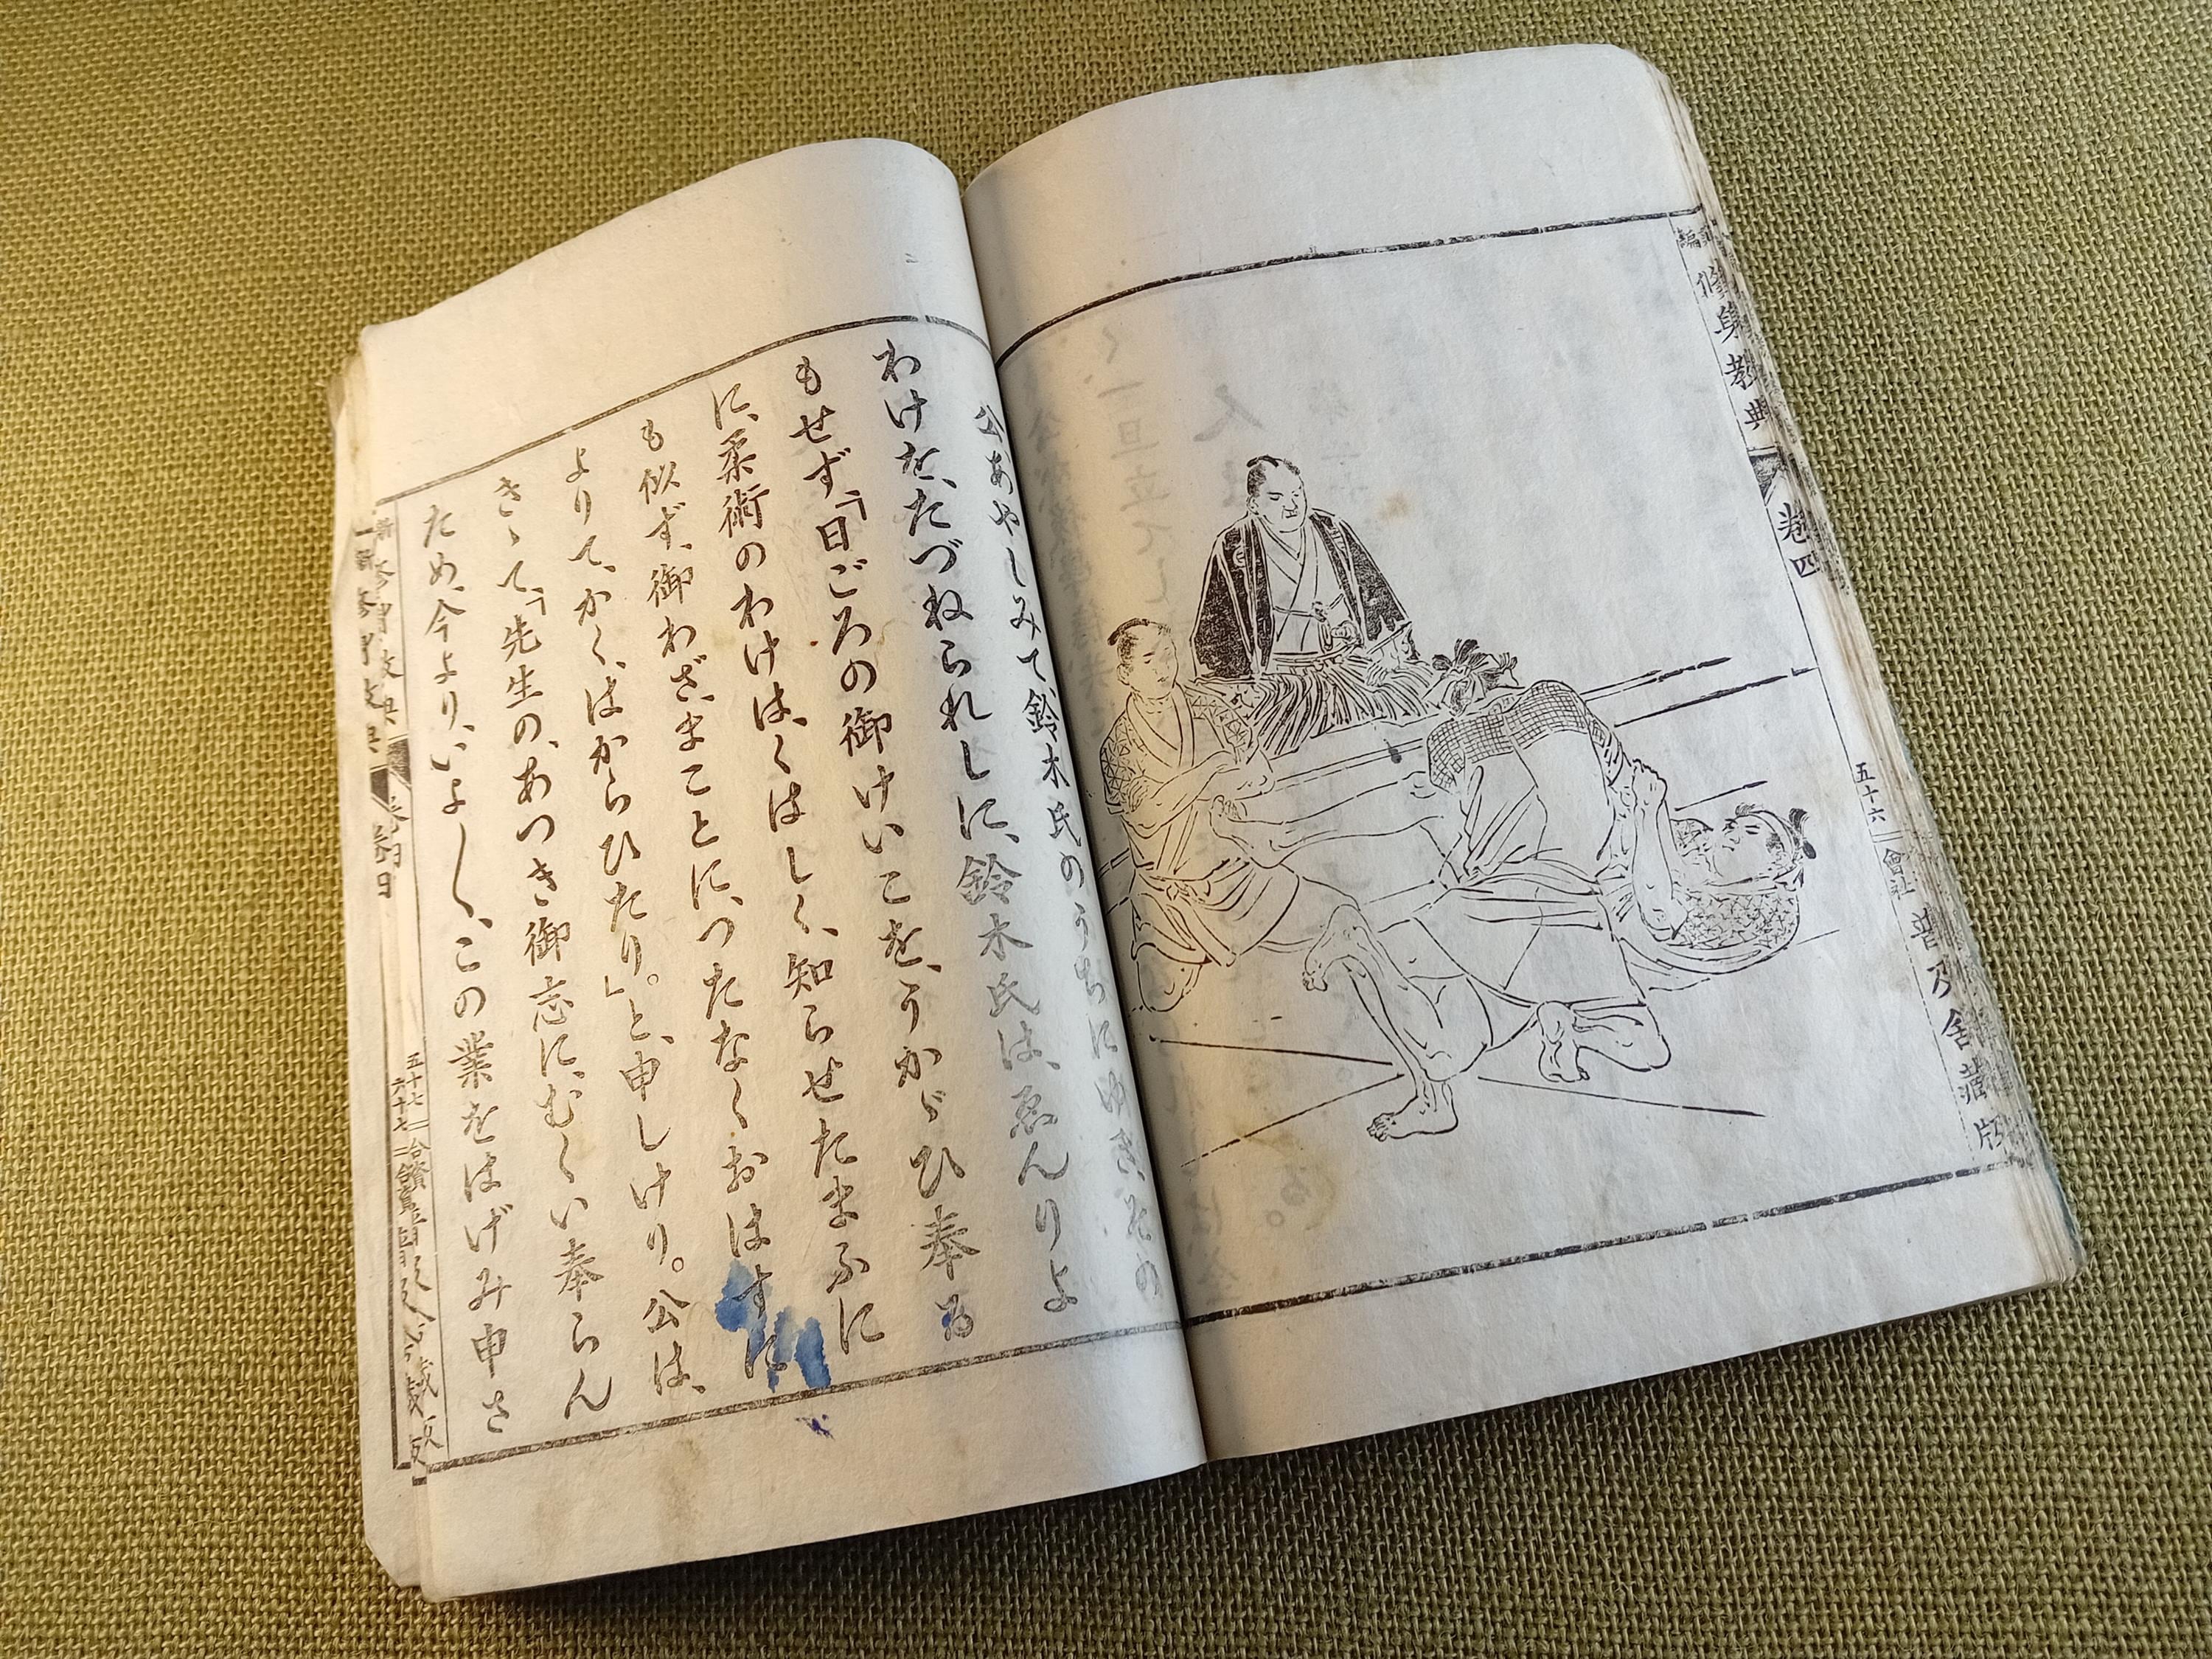 修身教典
卷四
五十六
會社
普及舍藏版
公あやしみて鈴木氏のうちにゆきその
わけを、たづねられしに、鈴木氏は、ゑんりよ
もせず、「日ごろの御けいこを、うかゞひ奉る
に、柔術のわけは、くはしく、知らせたまふに
も似ず、御わざ、まことに、つたなくおはすに
よりて、かく、はからひたり。」と、申しけり。公は、
きゝて、「先生の、あつき御志に、むくい奉らん
ため、今より、いよ〳〵、この業をはげみ申さ
五十七